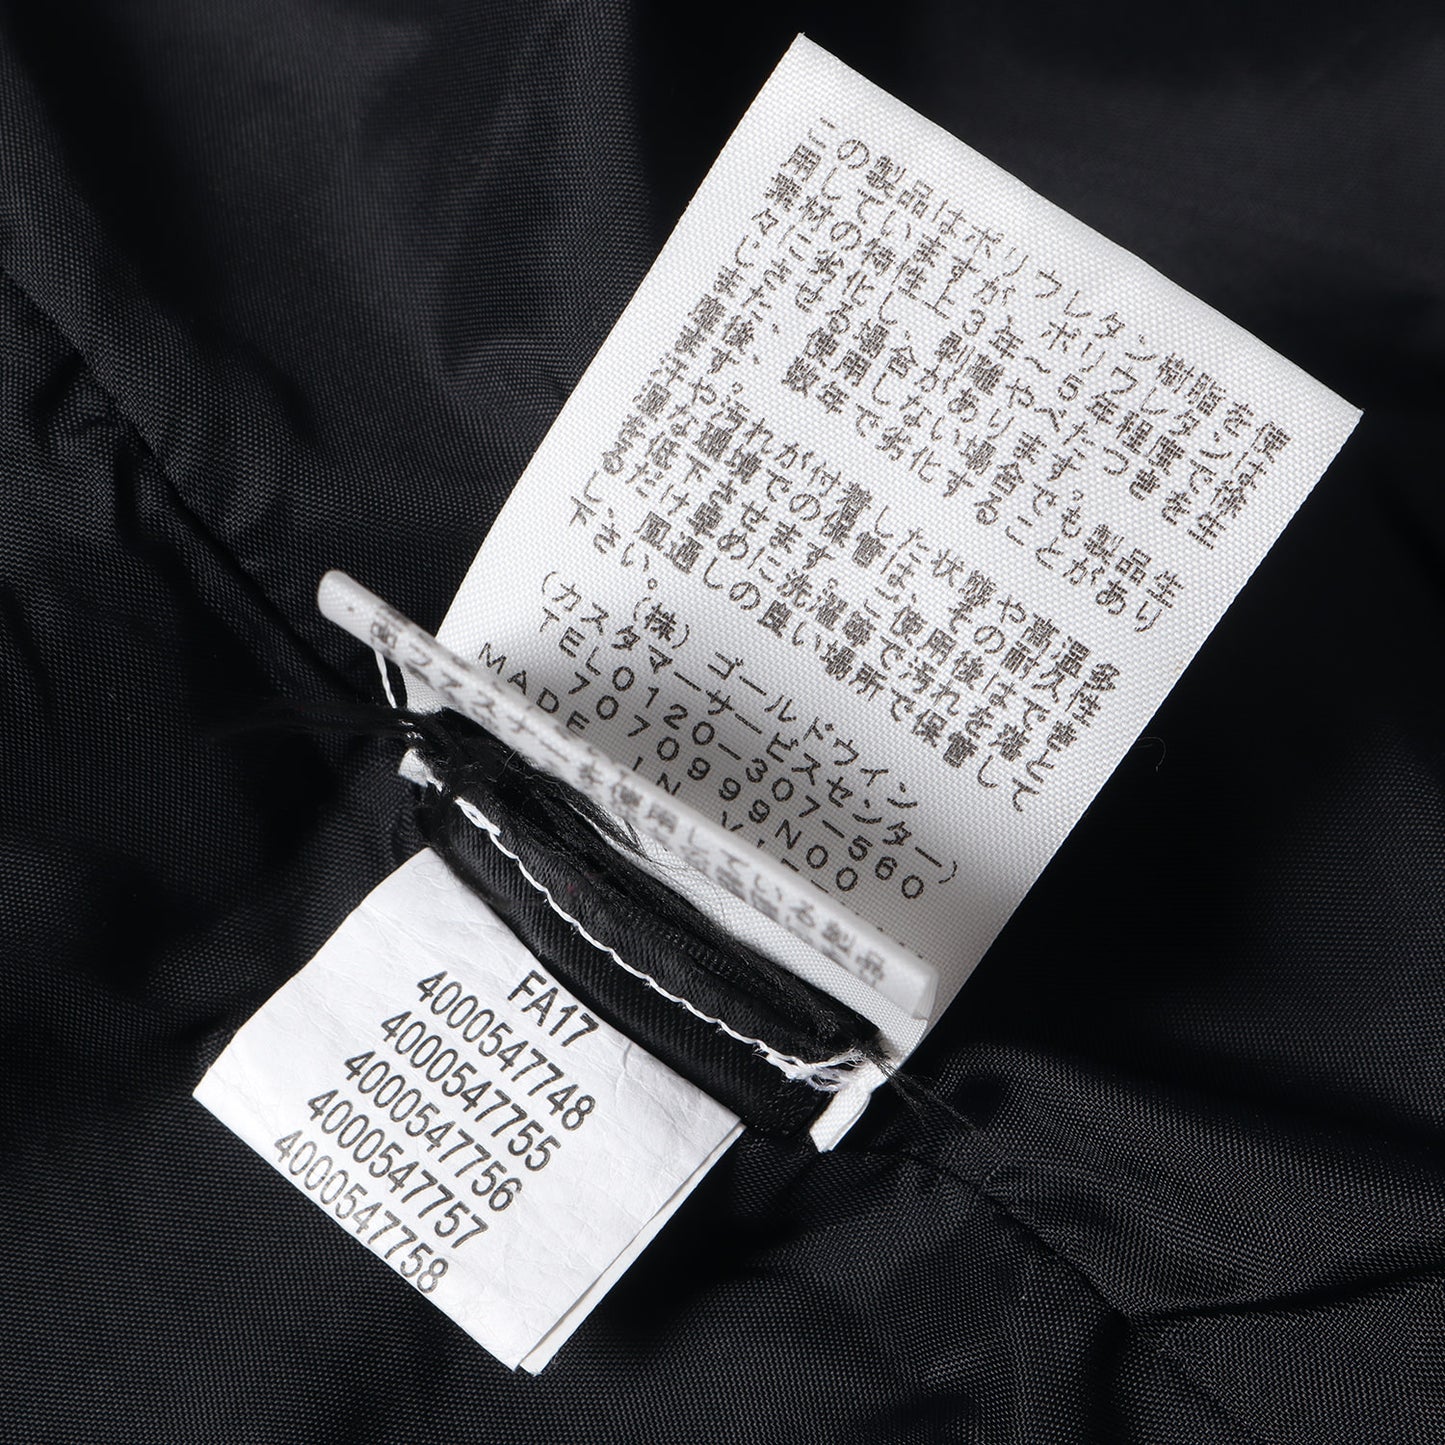 この製品はポリウレタン樹脂を使
用していますが、ポリウレタンは
素材の特性上3年〜5年程度で徐
々に劣化し、剥離やべたつきを生
じさせる場合があります。
また、使用しない場合でも製品生
産後、数年で劣化することがあり
ます。
汗や汚れが付着した状態や高温多
湿な環境での保管は、耐久性
を低下させます。ご使用後はでき
るだけ早めに洗濯等で汚れを落と
し、風通しの良い場所で保管して
下さい。
(株)ゴールドウイン
(カスタマーサービスセンター)
TEL0120-307-560
7070999N00
MADE IN
ファスナーを使用している製品
FA17
4000547748
4000547755
4000547756
4000547757
4000547758